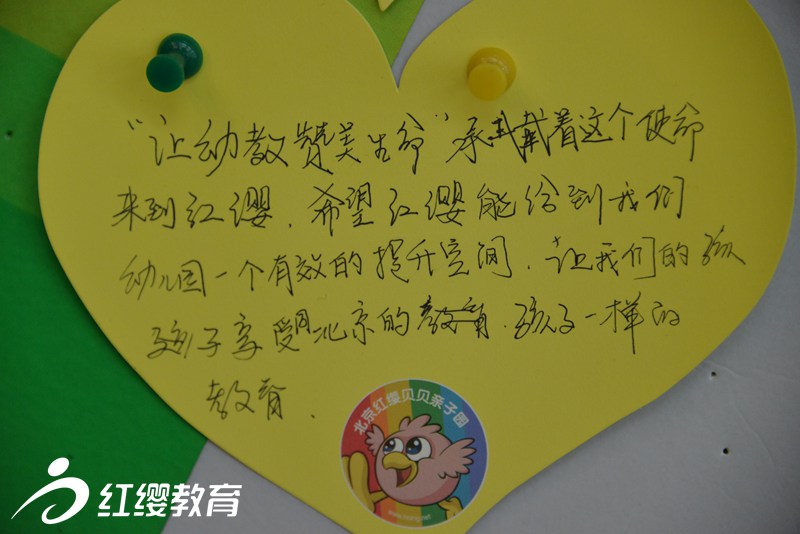 “让幼教赞美生命”承载着这个使命
来到红缨．希望红缨能给到我们
幼儿园一个有效的提升空间．让我们的孩
孩子享受同北京的教育．孩子一样的
教育．
北京红缨贝贝亲子园
红缨教育